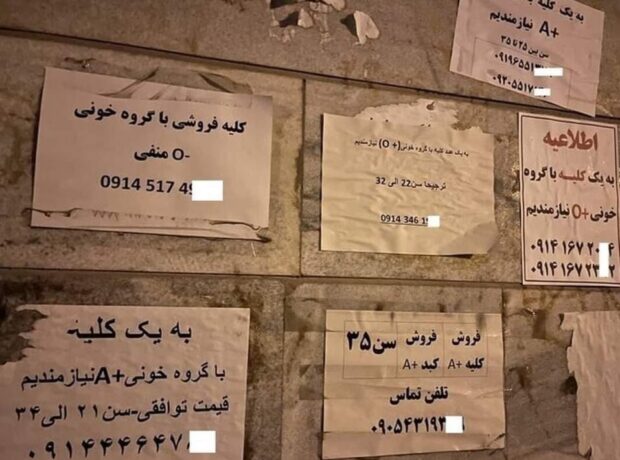 به یک کلیه
A+ نیازمندیم
سن بین ۲۵ تا ۳۵
۰۹۱۹۶۵۵۱
۰۹۲۰۵۵۱۷
کلیه فروشی با گروه خونی
O- منفی
0914 517 49
به یک عدد کلیه با گروه خونی(+ O) نیازمندیم
ترجیحا سن22 الی 32
0914 346 19
اطلاعیه
به یک کلیـه با گروه
خونی +O نیازمندیم
۰۹۱۴ ۱۶۷ ۲۰ ۴
۰۹۱۴ ۱۶۷ ۲۳ ۲
به یک کلیه
با گروه خونی+A نیازمندیم
قیمت توافقی-سن ۲۱ الی ۳۴
۰۹۱۴۴۴۶۴۷
فروش کلیه +A
فروش کبد +A
سن ۳۵
تلفن تماس
۰۹۰۵۴۳۱۹۳